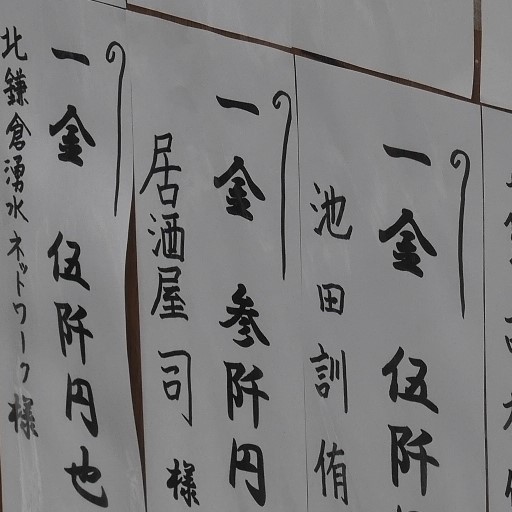 一金 伍阡
池田訓侑
一金 参阡円
居酒屋 司 様
一金 伍阡円也
北鎌倉湧水ネットワーク様